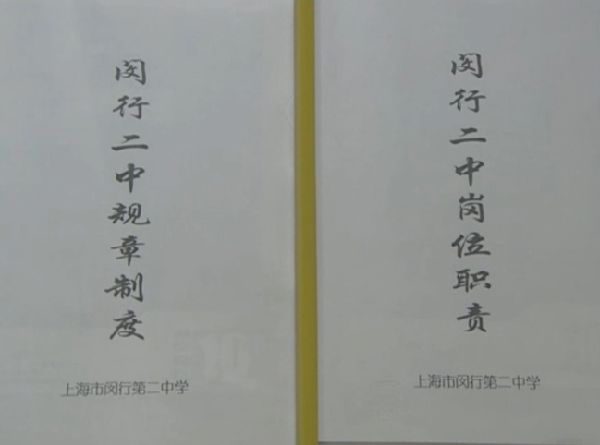 闵行二中规章制度
上海市闵行第二中学
闵行二中岗位职责
上海市闵行第二中学